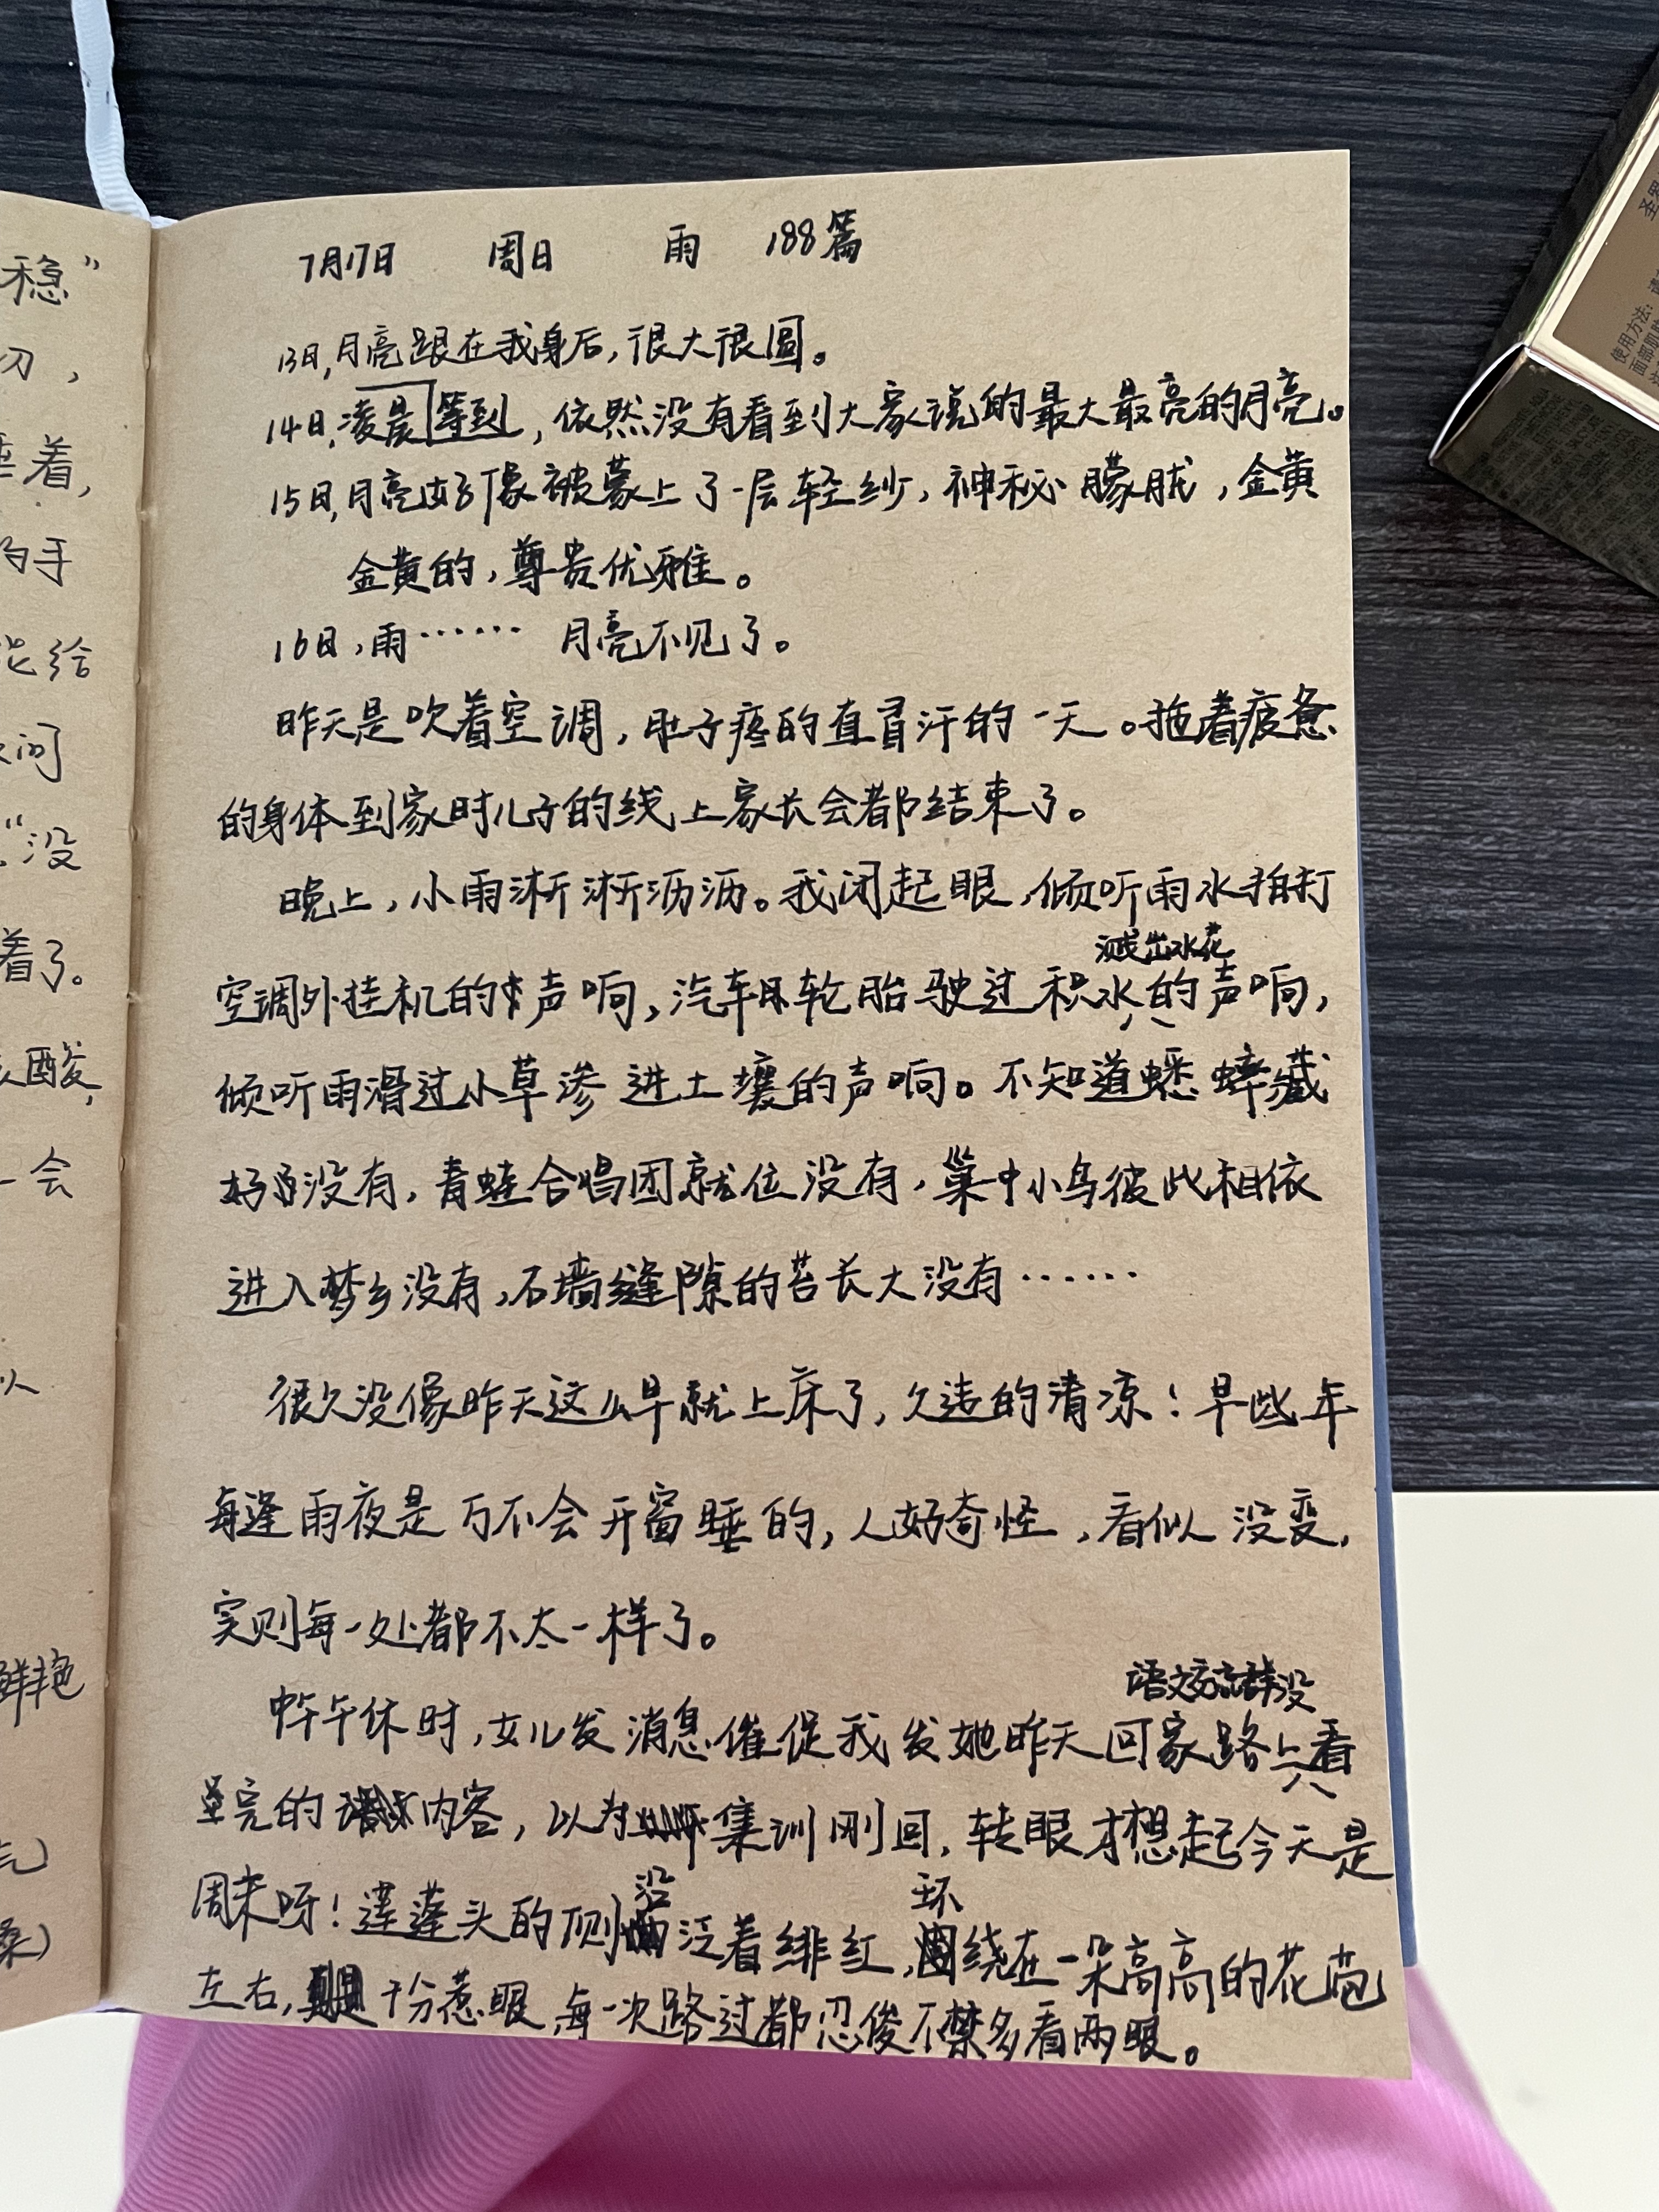 7月17日 周日 雨 188篇
13日,月亮跟在我身后,很大很圆。
14日,等到凌晨,依然没有看到大家说的最大最亮的月亮。
15日,月亮好像被蒙上了一层轻纱,神秘朦胧,金黄
金黄的,尊贵优雅。
16日,雨…… 月亮不见了。
昨天是吹着空调,肚子疼的直冒汗的一天。拖着疲惫
的身体到家时儿子的线上家长会都结束了。
晚上,小雨淅淅沥沥。我闭起眼,倾听雨水拍打
空调外挂机的声响,汽车轮胎驶过积水溅出水花的声响,
倾听雨滑过小草渗进土壤的声响。不知道蟋蟀藏
好没有,青蛙合唱团就位没有,巢中小鸟彼此相依
进入梦乡没有,石墙缝隙的苔长大没有……
很久没像昨天这么早就上床了,久违的清凉!早些年
每逢雨夜是万不会开窗睡的,人好奇怪,看似没变,
实则每一处都不太一样了。
午休时,女儿发消息催促我发她昨天回家路上语文交流群没看
完的内容,以为集训刚回,转眼才想起今天是
周末呀!莲蓬头的顶侧沿泛着绯红,环绕在一朵高高的花苞
左右,十分惹眼,每一次路过都忍俊不禁多看两眼。
稳”
刃,
着,
的手
给
问
“没
着了。
酸,
会
鲜艳
使用方法:
面部肌